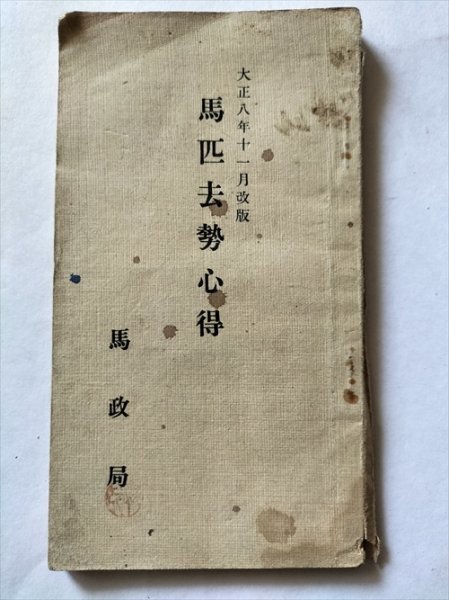 大正八年十一月改版
馬匹去勢心得
馬政局